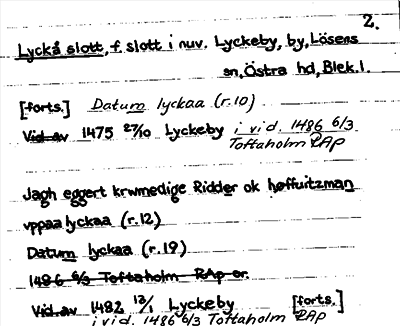 2.
Lyckå slott, f. slott i nuv. Lyckeby, by, Lösens
sn, Östra hd, Blek. l.
[forts.] Datum lyckaa (r. 10)
Vid. av 1475 27/10 Lyckeby i vid. 1486 6/3
Toftaholm RAp
Jagh eggert krwmedige Ridder ok høffuitzman
vppaa lyckaa (r. 12)
Datum lyckaa (r. 19)
1486 6/3 Toftaholm RAp or.
Vid. av 1482 13/1 Lyckeby [forts.]
i vid. 1486 6/3 Toftaholm RAp